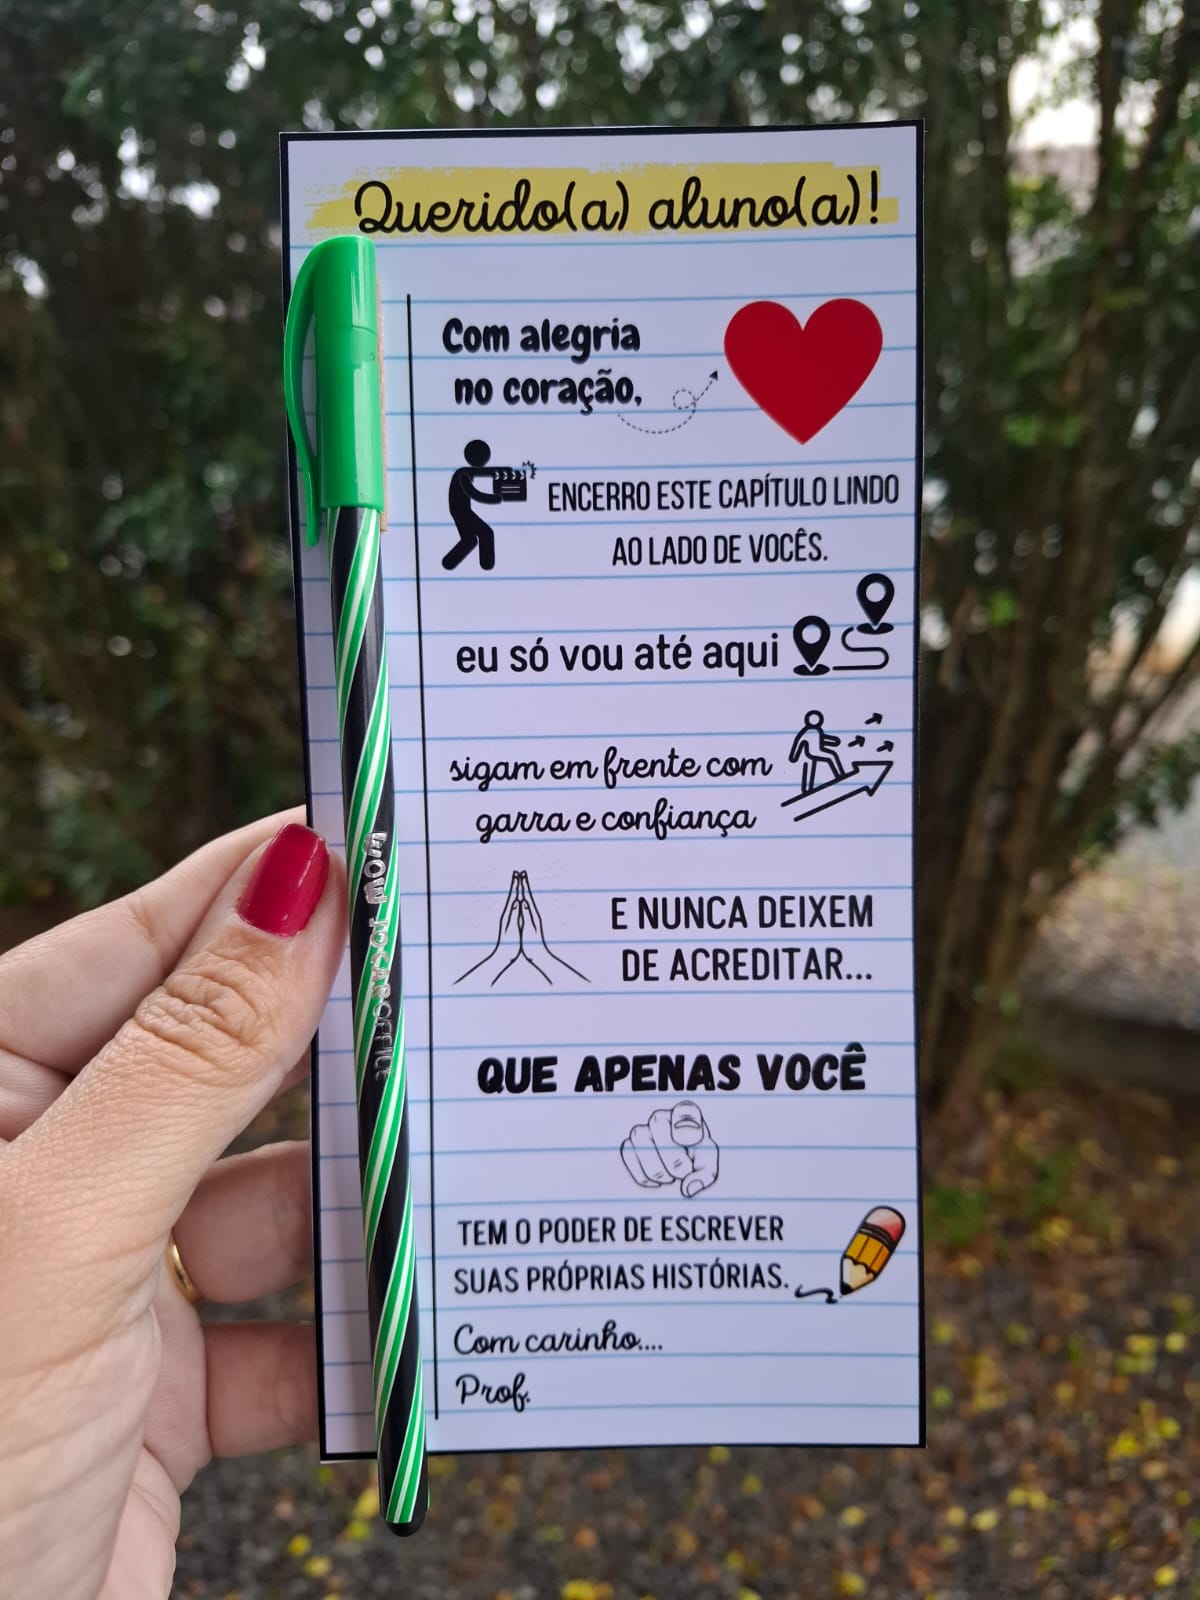 Querido(a) aluno(a)!
Com alegria
no coração,
ENCERRO ESTE CAPÍTULO LINDO
AO LADO DE VOCÊS.
eu só vou até aqui
sigam em frente com
garra e confiança
E NUNCA DEIXEM
DE ACREDITAR...
QUE APENAS VOCÊ
TEM O PODER DE ESCREVER
SUAS PRÓPRIAS HISTÓRIAS.
Com carinho....
Prof.
WOW JOCAR OFFICE